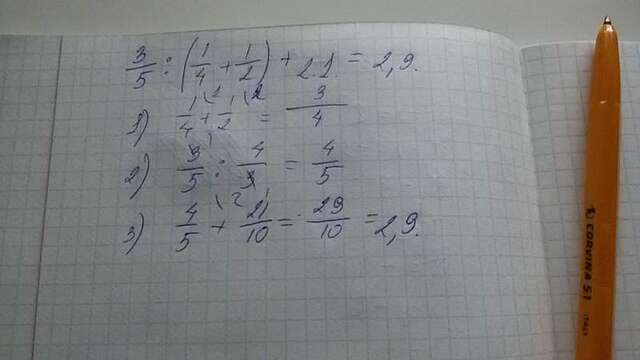 3/5 : (1/4 + 1/2) + 2.1. = 2,9.
1) 1/4 + 1\2/2 = 3/4
2) 3/5 : 4/3 = 4/5
3) 4\2/5 + 21/10 = 29/10 = 2,9.
CORVINA 51
ITALY